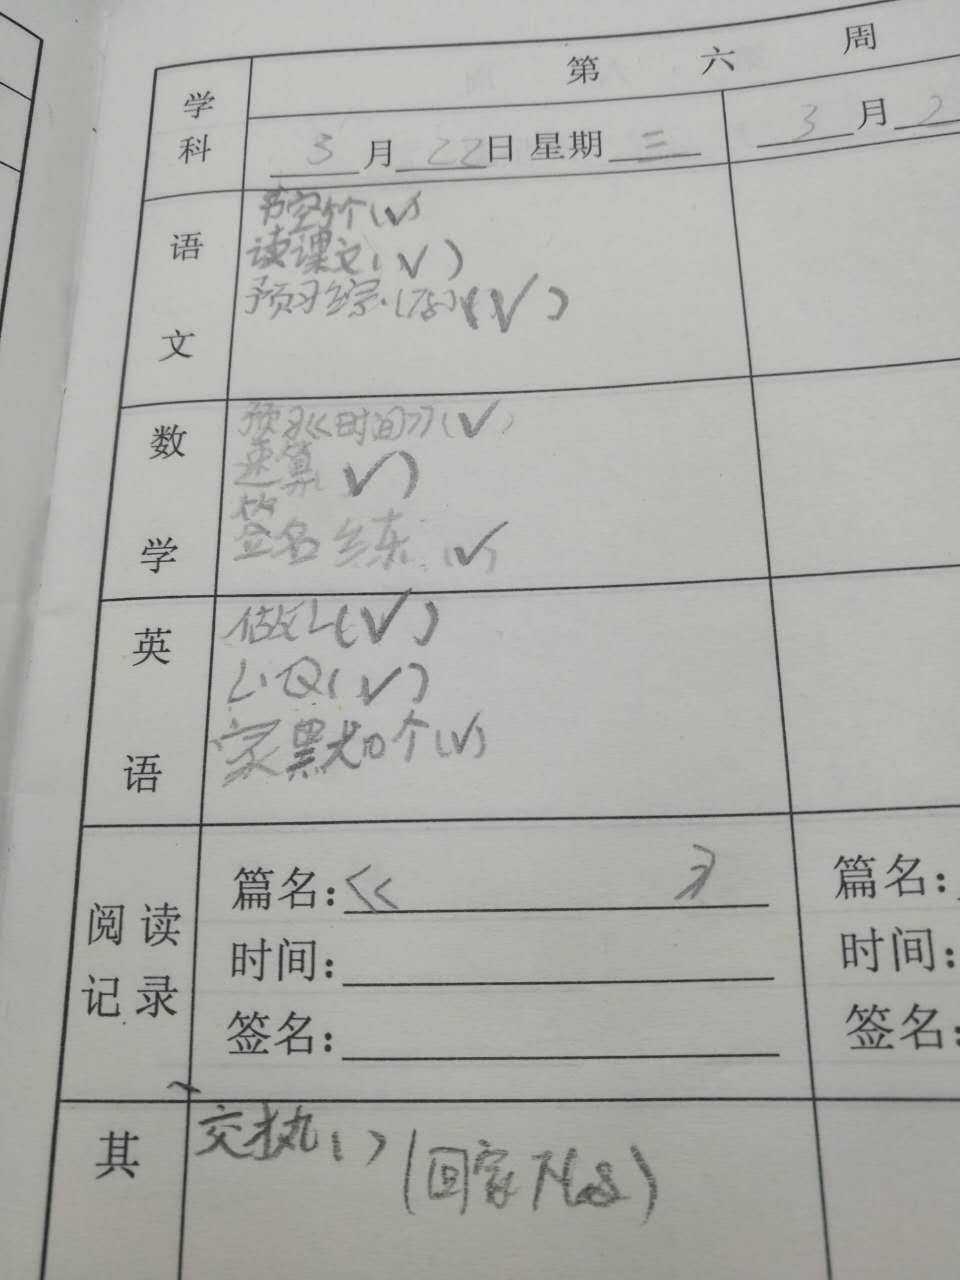 学科
第 六 周
3月22日 星期三
3月2
语文
书空竹(√)
读课文(√)
预习综.(√)
数学
预习《时间》(√)
速算 √)
签名 练 (√)
英语
做L(√)
L.Q(√)
家默10个(√)
阅读记录
篇名:《 》
时间:
签名:
篇名:
时间:
签名:
其
交执( ) (回家